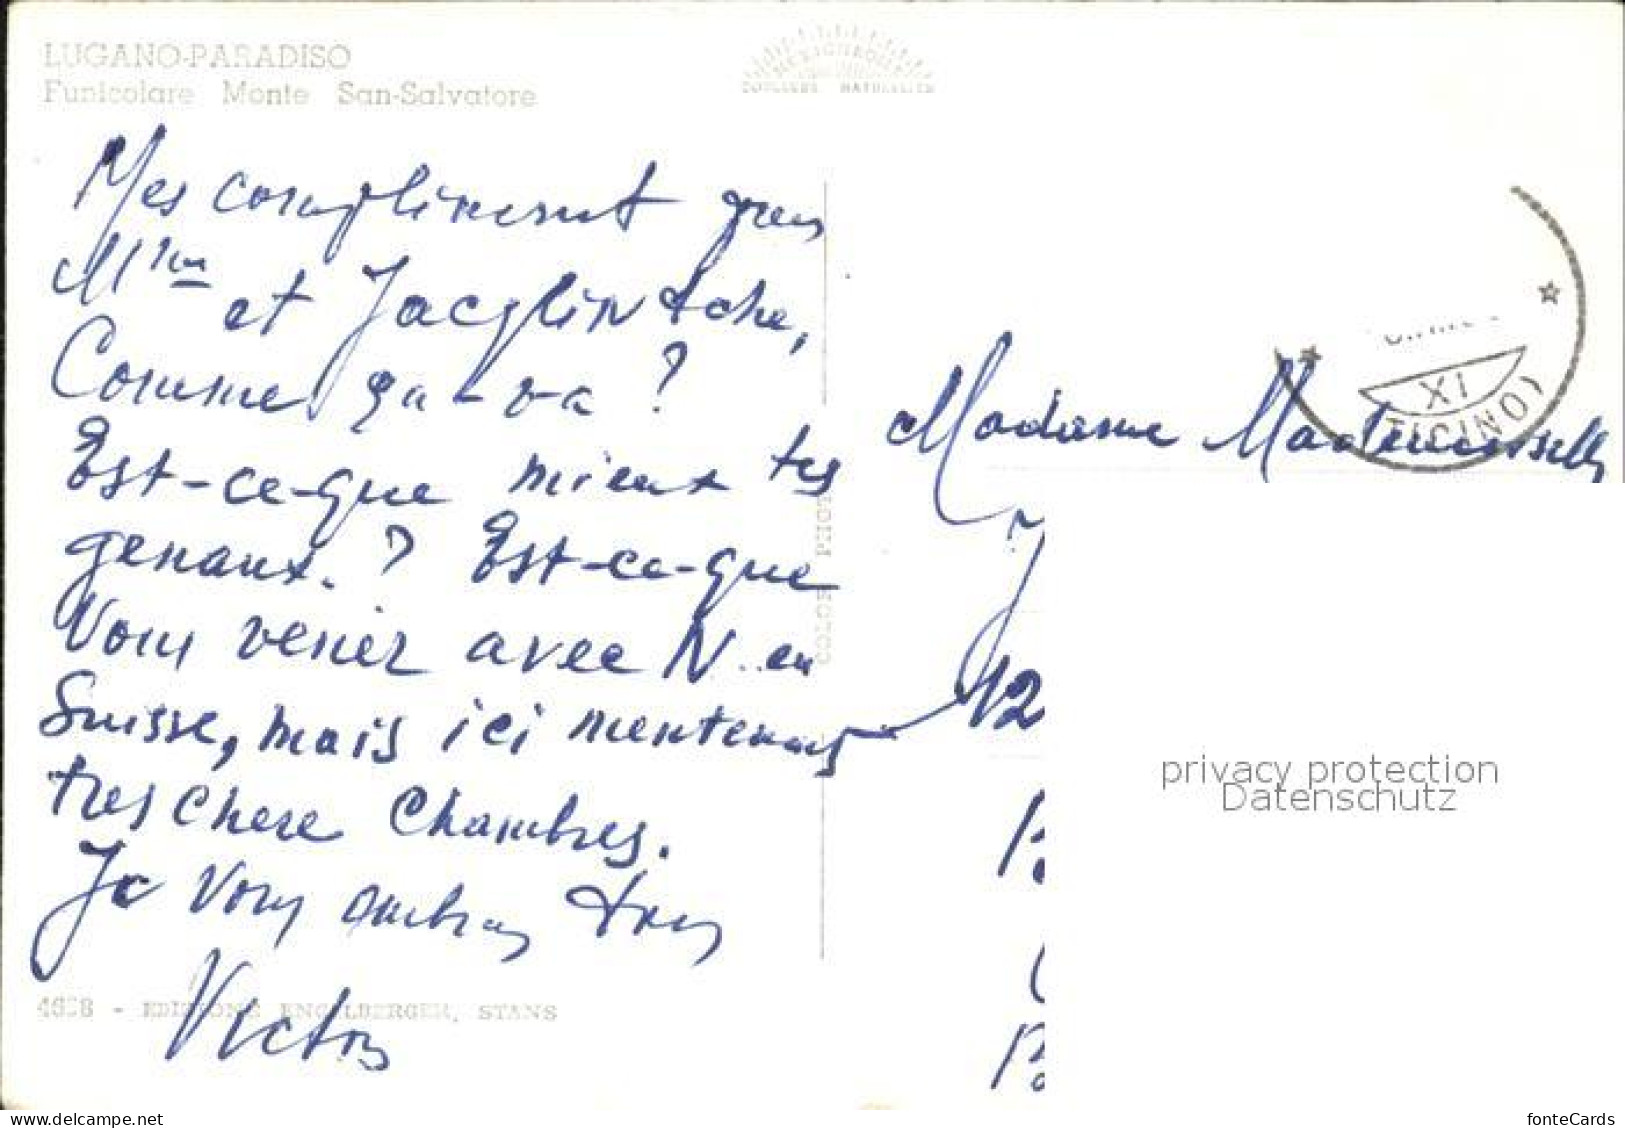 LUGANO-PARADISO
Funicolare Monte San-Salvatore
Mes compliment pour
Mme et Jacqlin tche,
Comme ça-v-a ?
Est-ce-que mieux tes
genaux. ? Est-ce-que
Vous venier avec N.. en
Suisse, mais ici mentenant
tres chere Chambres.
Je Vous ambras tous
Victor
4638 - EDIZIONE ENGELBERGER, STANS
COLOR PHOTO
XI
TICINO)
Madame Mademoiselle
12
privacy protection
Datenschutz
www.delcampe.net
fonteCards